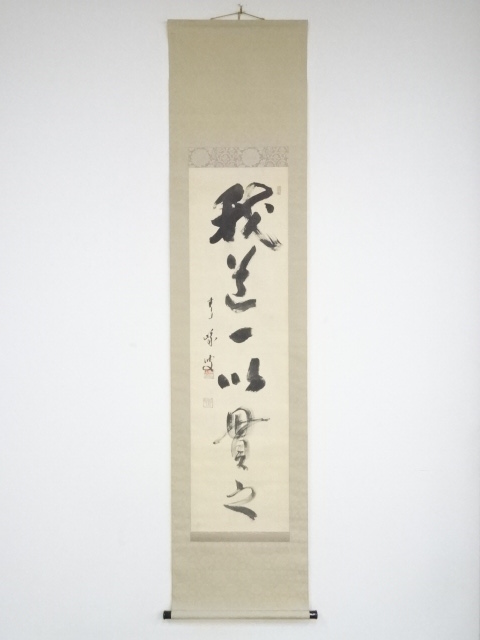 我道一以貫之